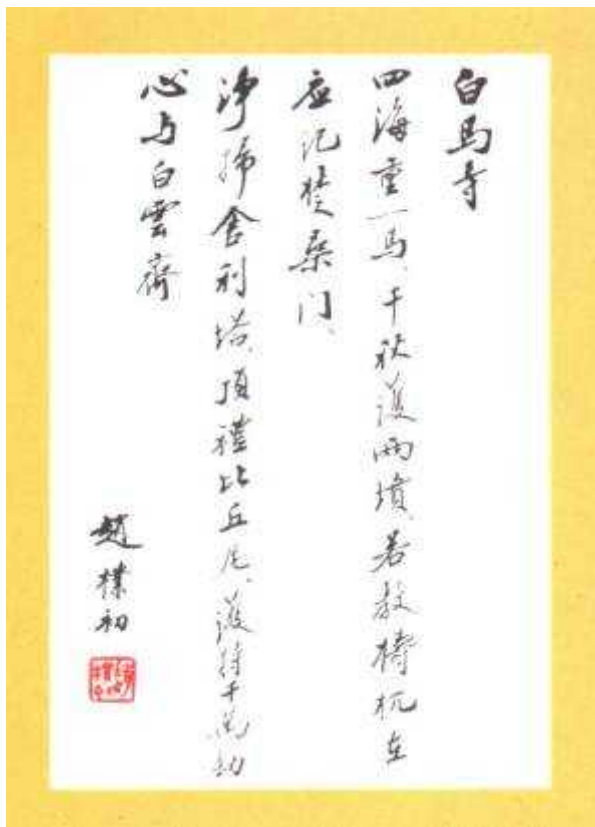 白馬寺
四海重一馬、千秋護兩墳、若教檮杌在
应记焚桑门、
净掃舍利塔、頂禮比丘尼、護持千萬劫
心与白雲齊
趙樸初